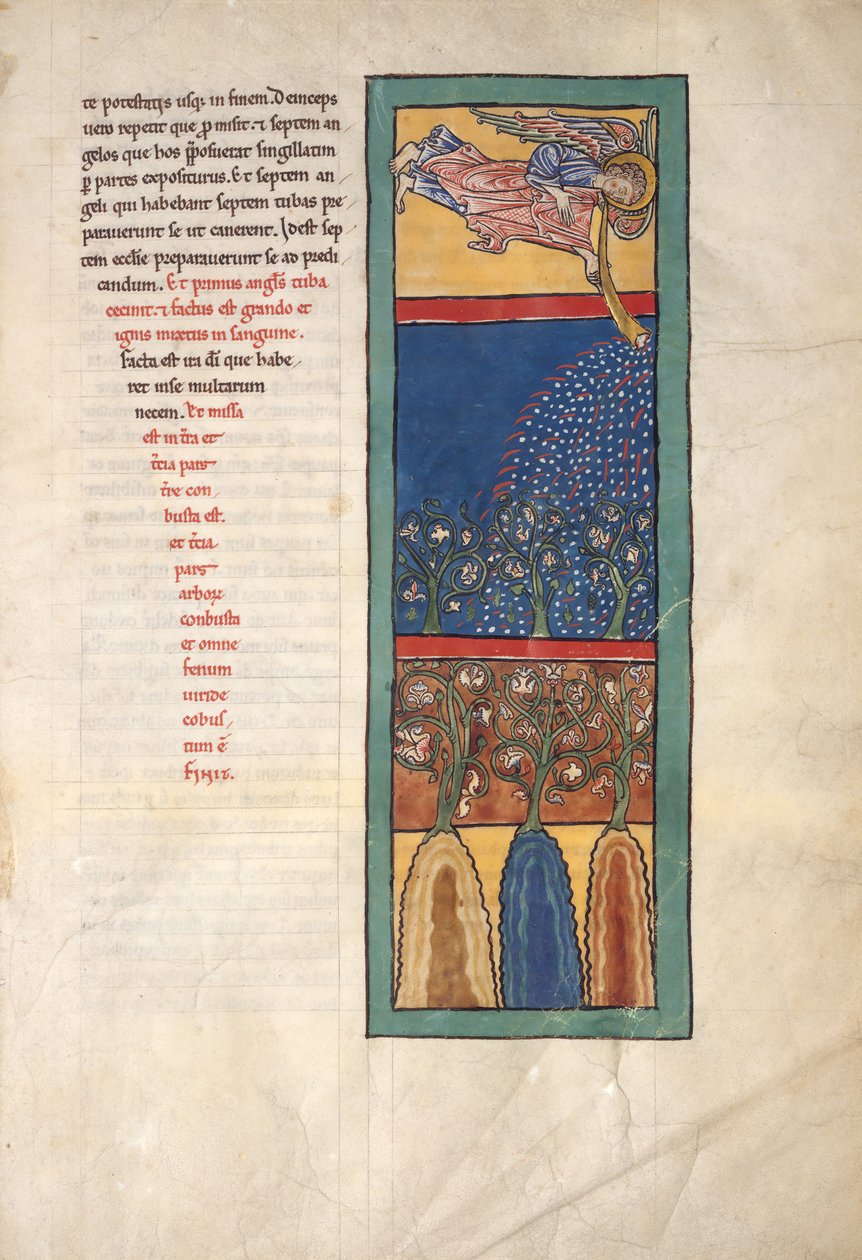 te potestatis usq; in finem. Deinceps
uero repetit que p̄misit. ⁊ septem an
gelos que hos p̄posuerat singillatim
ꝑ partes expositurus. Et septem an
geli qui habebant septem tubas pre
parauerunt se ut canerent. Idest sep
tem eccl̄ie preparauerunt se ad predi
candum. Et primus angl̄s tuba
cecinit. ⁊ factus est grando et
ignis mixtus in sanguine.
Facta est ira dī que habe
ret inse multarum
necem. Et missa
est in t̄ra et
t̄cia pars
t̄re con
busta est.
et t̄cia
pars
arborꝝ
conbusta
et omne
fenum
uiride
cobus
tum ē
Finit.